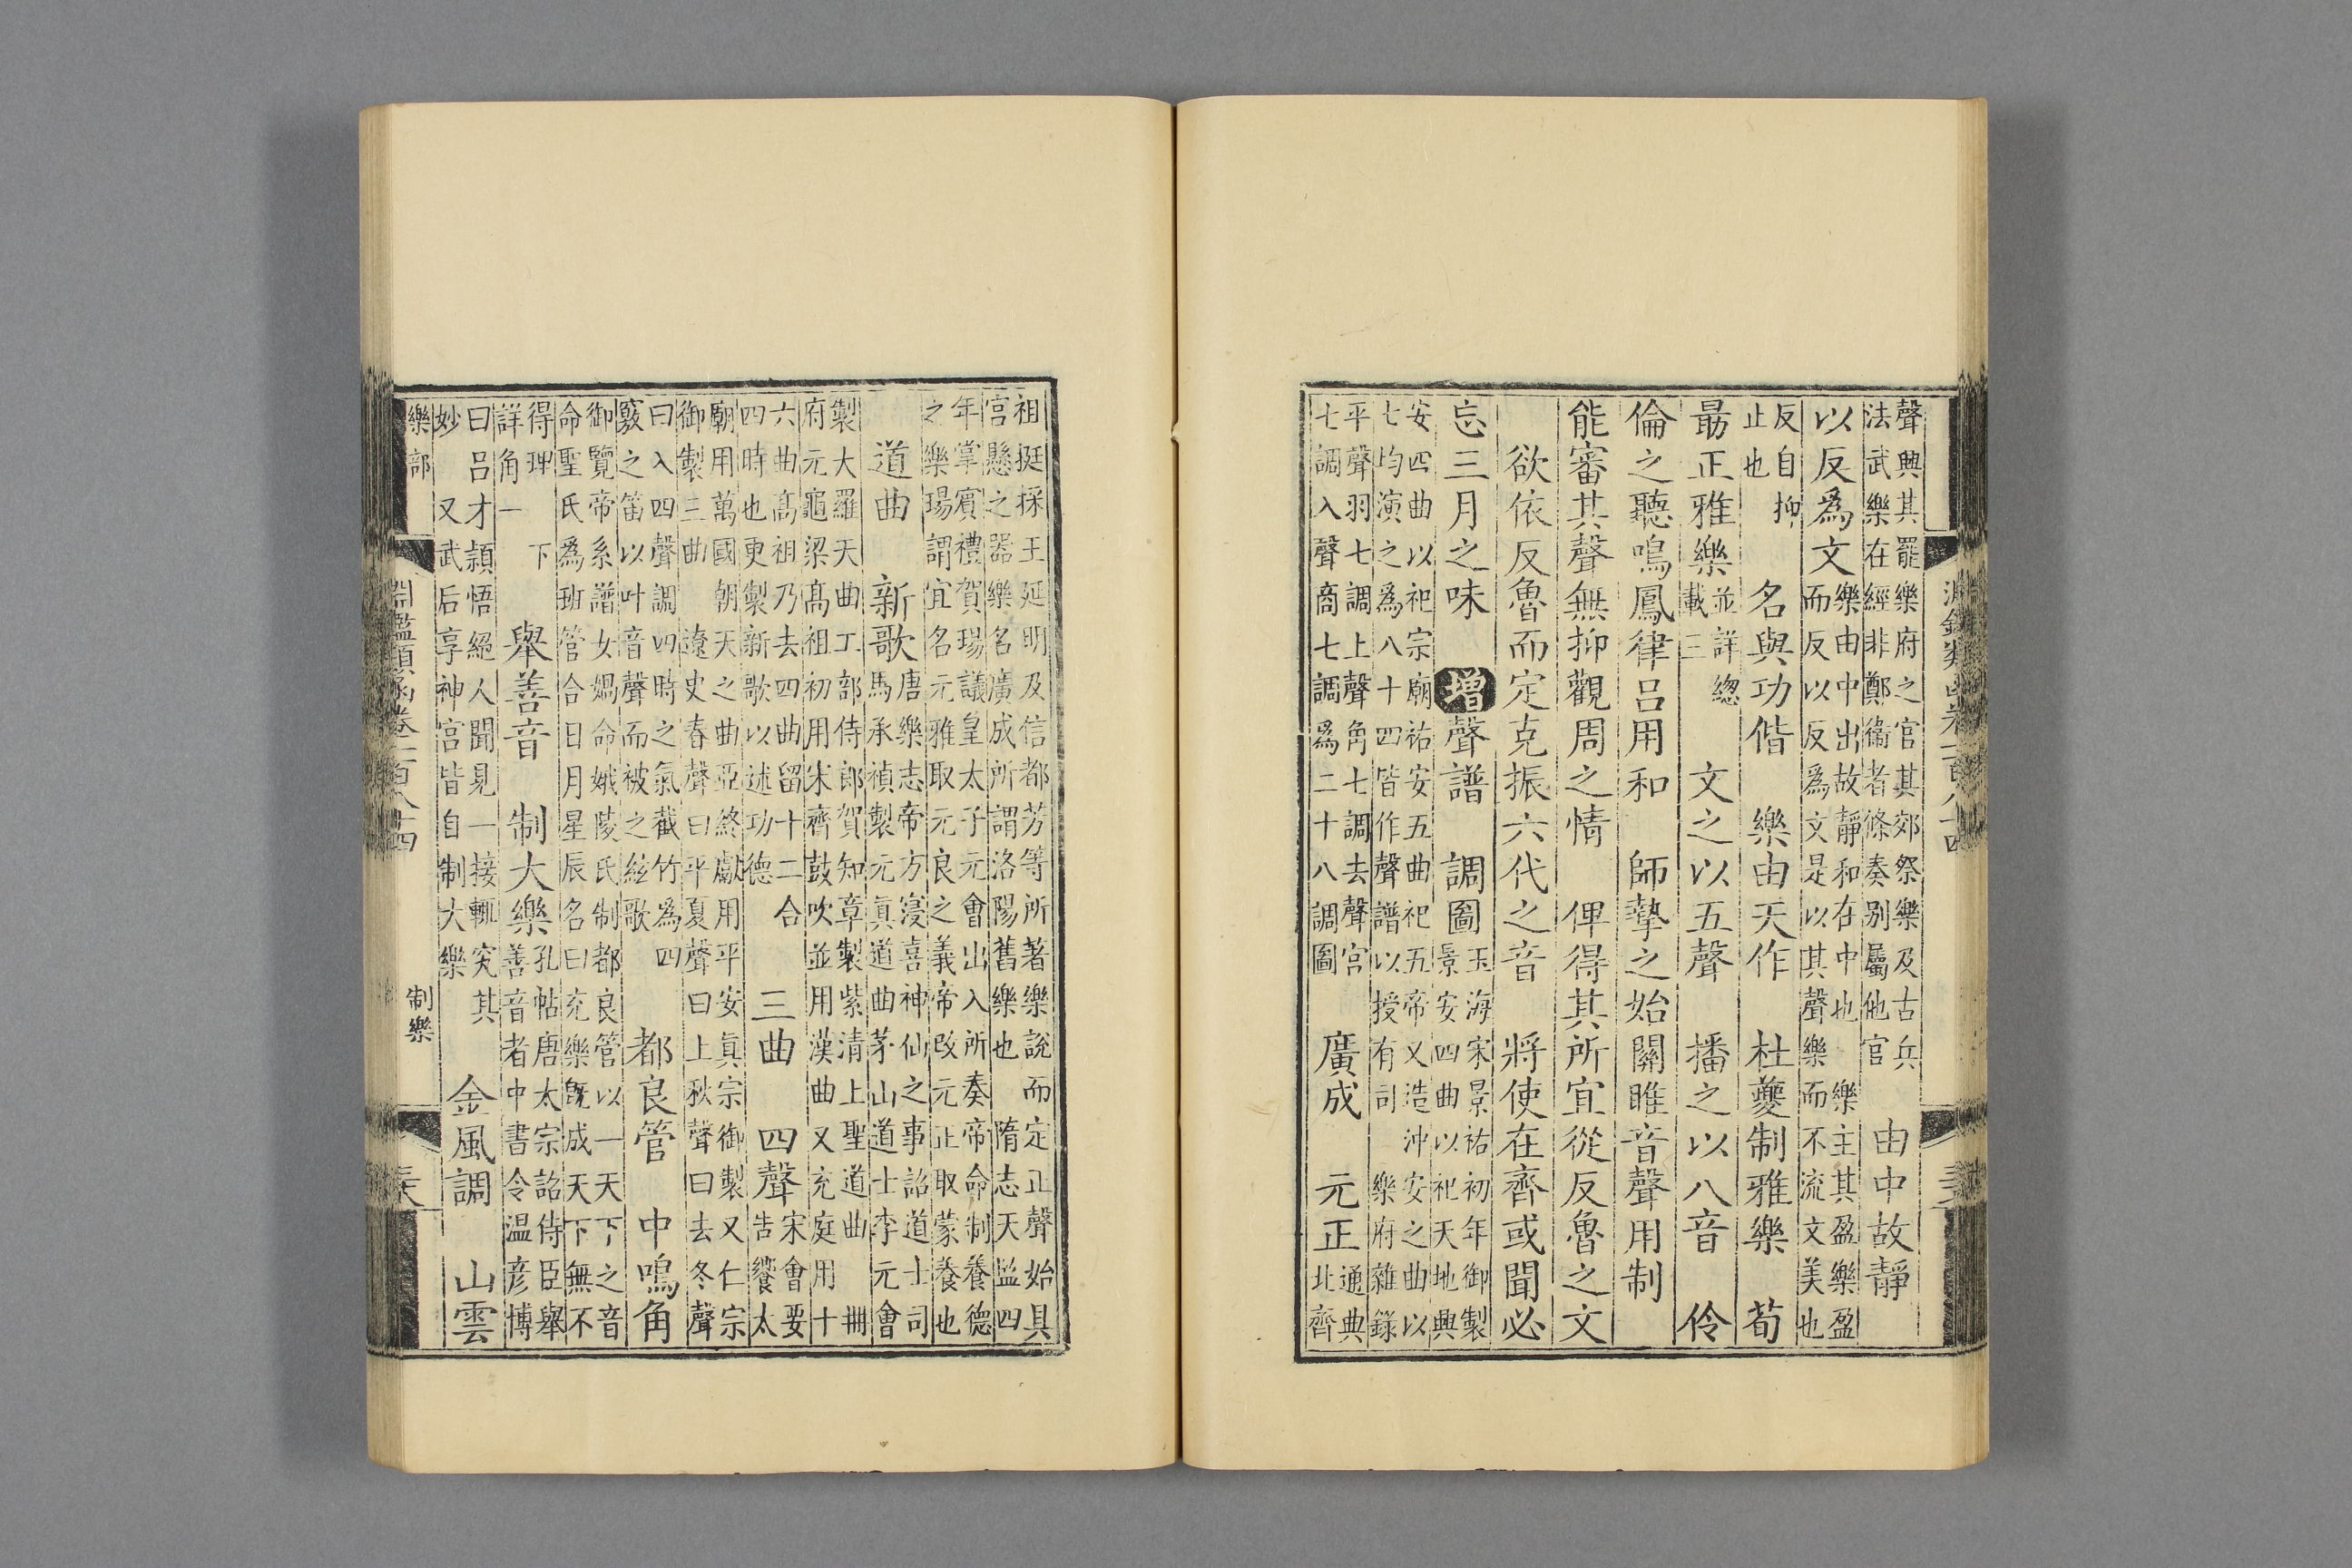 聲興其罷樂府之官其郊祭樂及古兵
法武樂在經非鄭衛者條奏别屬他官
由中故靜
以反爲文
樂由中出故靜和在中也 樂主其盈樂盈
而反以反爲文是以其聲樂而不流文美也
反自抑
止也
名與功偕 樂由天作 杜夔制雅樂 荀
最正雅樂
並詳總
載三
文之以五聲 播之以八音 伶
倫之聽鳴鳳律呂用和 師摯之始關雎音聲用制
能審其聲無抑觀周之情 俾得其所宜從反魯之文
欲依反魯而定克振六代之音 將使在齊或聞必
忘三月之味 增聲譜 調圖
玉海宋景祐初年御製
景安四曲以祀天地興
安四曲以祀宗廟祐安五曲祀五帝又造沖安之曲以
七均演之爲八十四皆作聲譜以授有司 樂府雜錄
平聲羽七調上聲角七調去聲宮
七調入聲商七調爲二十八調圖
廣成 元正
通典
北齊
祖挺採王延明及信都芳等所著樂說而定正聲始具
宮懸之器樂名廣成所謂洛陽舊樂也 隋志天監四
年掌賓禮賀瑒議皇太子元會出入所奏帝命制養德
之樂瑒謂宜名元雅取元良之義帝改元正取蒙養也
道曲 新歌
唐樂志帝方寖喜神仙之事詔道士司
馬承禎製元真道曲茅山道士李元會
製大羅天曲工部侍郎賀知章製紫清上聖道曲 冊
府元龜梁高祖初用宋齊鼓吹並用漢曲又充庭用十
六曲高祖乃去四曲留十二合
四時也更製新歌以述功德
三曲 四聲
宋會要
告饗太
廟用萬國朝天之曲亞終獻用平安真宗御製又仁宗
御製三曲 遼史春聲曰平夏聲曰上秋聲曰去冬聲
曰入四聲調四時之氣截竹爲四
竅之笛以叶音聲而被之絃歌
都良管 中鳴角
御覽帝系譜女媧命娥陵氏制都良管以一天下之音
命聖氏爲班管合日月星辰名曰充樂旣成天下無不
得理 下
詳角一
舉善音 制大樂
孔帖唐太宗詔侍臣舉
善音者中書令温彦博
曰呂才頴悟絕人聞見一接輒究其
妙 又武后享神宮皆自制大樂
金風調 山雲
樂部 制樂
淵鑑類函卷一百八十四